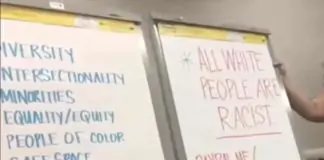 DIVERSITY
INTERSECTIONALITY
MINORITIES
EQUALITY/EQUITY
PEOPLE OF COLOR
SAFE SPACE
* ALL WHITE
PEOPLE ARE
RACIST